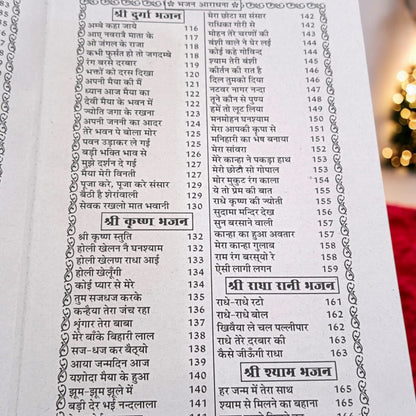 ☆ भजन आराधना ☆
श्री दुर्गा भजन
अम्बे कहा जाये 116
आए नवरात्रे माता के 117
ओ जंगल के राजा 118
कभी फुर्सत हो तो जगदम्बे 118
रंग बरसे दरबार 119
भक्तों को दरस दिखा 120
अपनी मैया की मैं 121
ध्यान आज मैया का 122
देवी मैया के भवन में 122
ज्योति जगा के रखना 123
अपनी जननी का आदर 124
तेरे भवन पे बोला मोर 125
पवन उड़ाकर ले गई 126
बड़ी भक्ति भाव से 126
मुझे दर्शन दे गई 127
मैया मेरी विनती 127
पूजा करे, पूजा करे संसार 129
बैठी है शेरांवाली 129
सेवक रखलो मात भवानी 130
श्री कृष्ण भजन
श्री कृष्ण स्तुति 132
होली खेलन नै घनश्याम 132
होली खेलण राधा आई 133
होली खेलूँगी 134
कोई प्यार से मेरे 134
तुम सजधज करके 135
कन्हैया तेरा जंच रहा 136
श्रृंगार तेरा बाबा 137
मेरे बाँके बिहारी लाल 138
सज-धज कर बैठ्यो 138
आया जन्मदिन आज 139
यशोदा मैया के हुआ 140
झूम-झूम झूले में 140
बड़ी देर भई नन्दलाला 141
मेरा छोटा सा संसार 142
राधिका गोरी से 142
मोहन तेरे चरणों की 143
बंशी वाले ने घेर लई 144
कोई कहे गोविन्द 144
श्याम तेरी बंशी 145
कीर्तन की रात है 146
दिल तुमको दिया 146
नटवर नागर नन्दा 147
तूने कौन से पुण्य 148
हमें तो लूट लिया 149
मनमोहन घनश्याम 150
मेरा आपकी कृपा से 151
मनिहारी का भेष बनाया 151
मेरा सांवरा 152
मेरे कान्हा ने पकड़ा हाथ 153
मेरो छोटो सो गोपाल 153
मोर मुकुट रंग काला 154
ये तो प्रेम की बात 155
राधे कृष्ण की ज्योती 155
सुदामा मन्दिर देख 156
सुन बरसाने वाली 157
कान्हा का हुआ अवतार 157
मेरा कान्हा गुलाब 158
राम रंग बरस्यो रे 158
ऐसी लागी लगन 159
श्री राधा रानी भजन
राधे-राधे रटो 161
राधे-राधे बोल 161
खिवैया ले चल पल्लीपार 162
राधे तेरे दरबार की 163
कैसे जीऊँगी राधा 163
श्री श्याम भजन
हर जन्म में तेरा साथ 165
श्याम से मिलने का बहाना 165